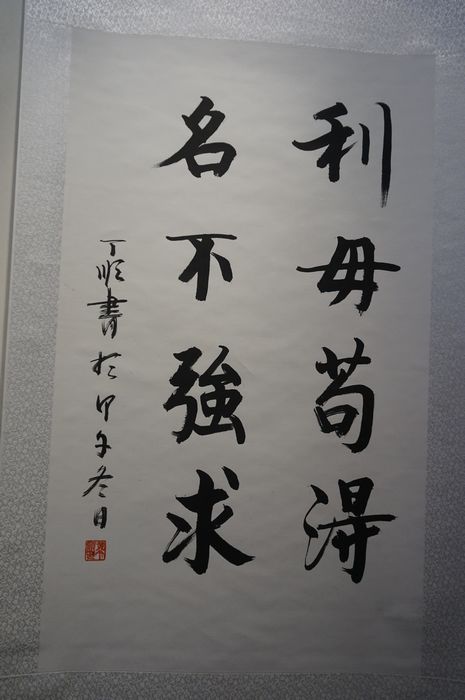 利毋苟得
名不強求
丁順書於甲午冬日